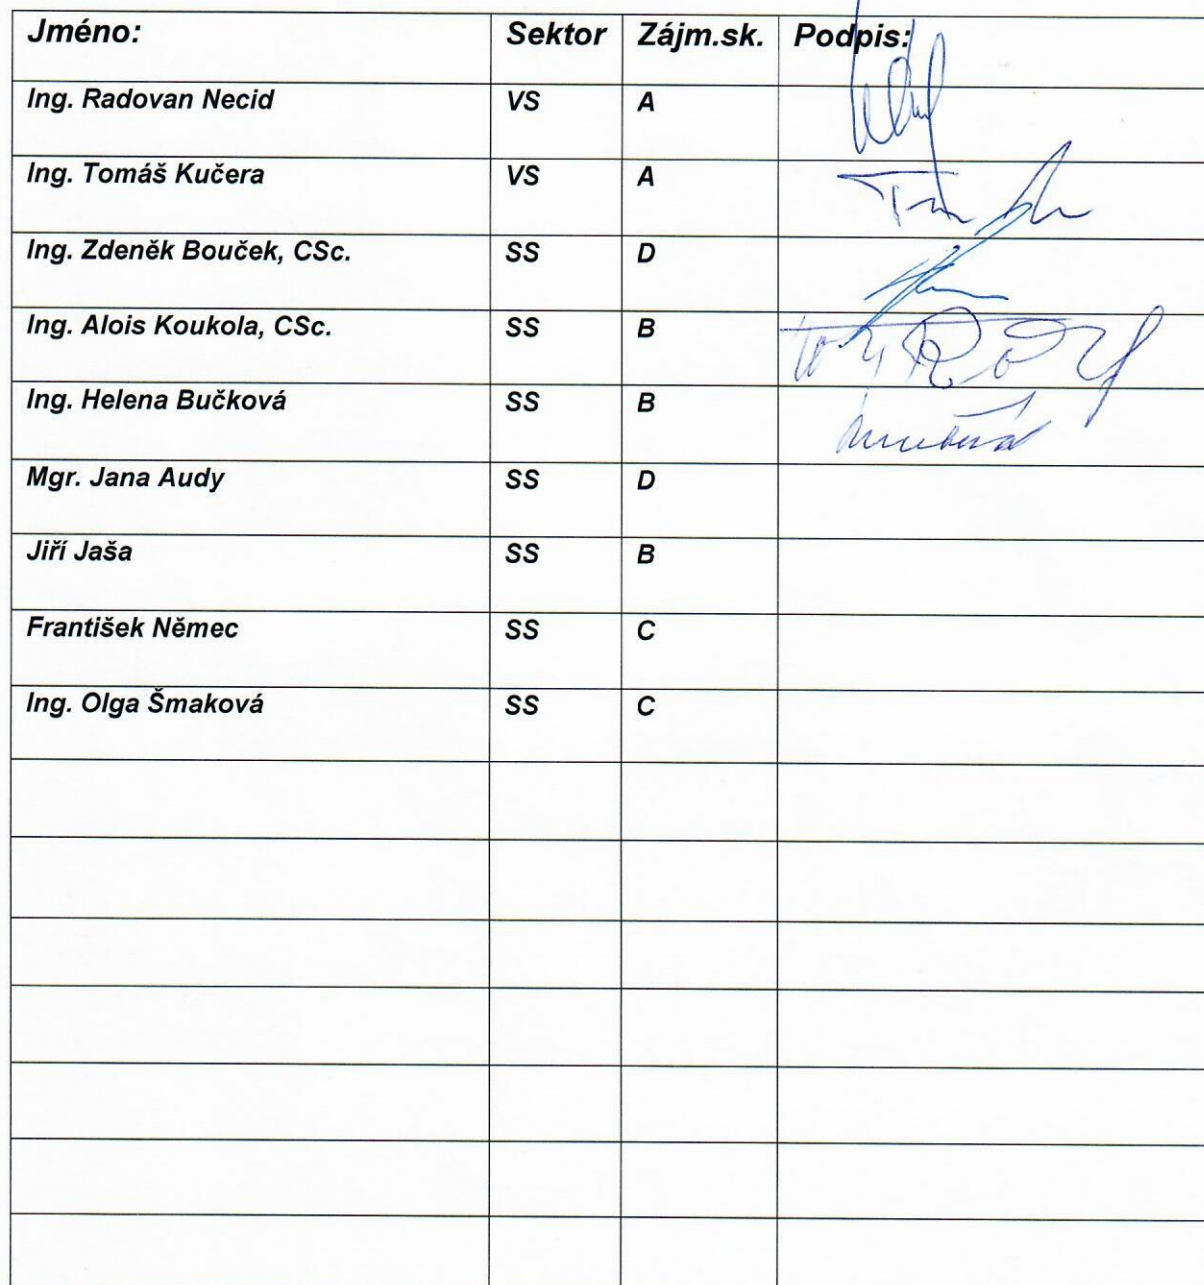 Jméno: Sektor Zájm.sk. Podpis:
Ing. Radovan Necid VS A
Ing. Tomáš Kučera VS A
Ing. Zdeněk Bouček, CSc. SS D
Ing. Alois Koukola, CSc. SS B
Ing. Helena Bučková SS B
Mgr. Jana Audy SS D
Jiří Jaša SS B
František Němec SS C
Ing. Olga Šmaková SS C